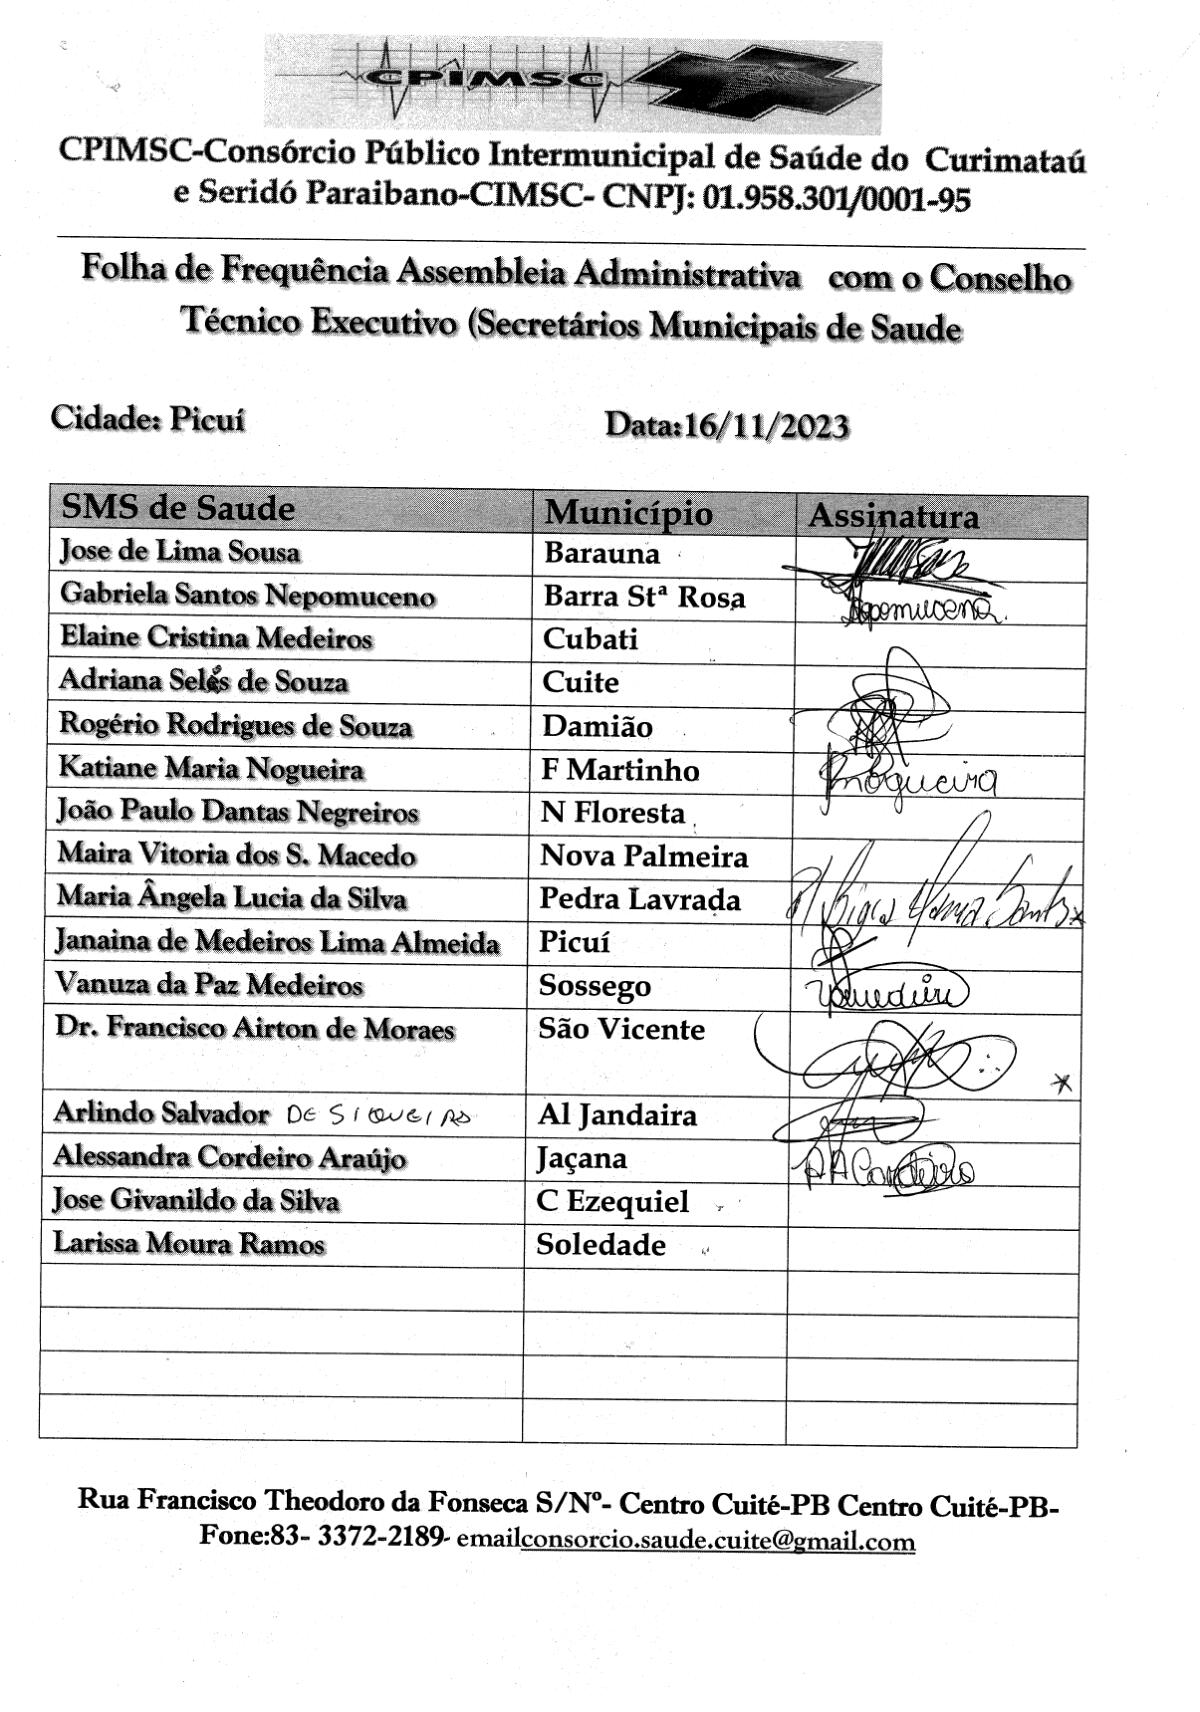 CPIMSC
CPIMSC-Consórcio Público Intermunicipal de Saúde do Curimataú
e Seridó Paraibano-CIMSC- CNPJ: 01.958.301/0001-95
Folha de Frequência Assembleia Administrativa com o Conselho
Técnico Executivo (Secretários Municipais de Saude
Cidade: Picuí Data:16/11/2023
SMS de Saude Município Assinatura
Jose de Lima Sousa Barauna
Gabriela Santos Nepomuceno Barra Stª Rosa Nepomuceno
Elaine Cristina Medeiros Cubati
Adriana Selés de Souza Cuite
Rogério Rodrigues de Souza Damião
Katiane Maria Nogueira F Martinho Nogueira
João Paulo Dantas Negreiros N Floresta
Maira Vitoria dos S. Macedo Nova Palmeira
Maria Ângela Lucia da Silva Pedra Lavrada
Janaina de Medeiros Lima Almeida Picuí
Vanuza da Paz Medeiros Sossego
Dr. Francisco Airton de Moraes São Vicente
Arlindo Salvador DE SIQUEIRA Al Jandaira
Alessandra Cordeiro Araújo Jaçana Cordeiro
Jose Givanildo da Silva C Ezequiel
Larissa Moura Ramos Soledade
Rua Francisco Theodoro da Fonseca S/Nº- Centro Cuité-PB Centro Cuité-PB-
Fone:83- 3372-2189- emailconsorcio.saude.cuite@gmail.com